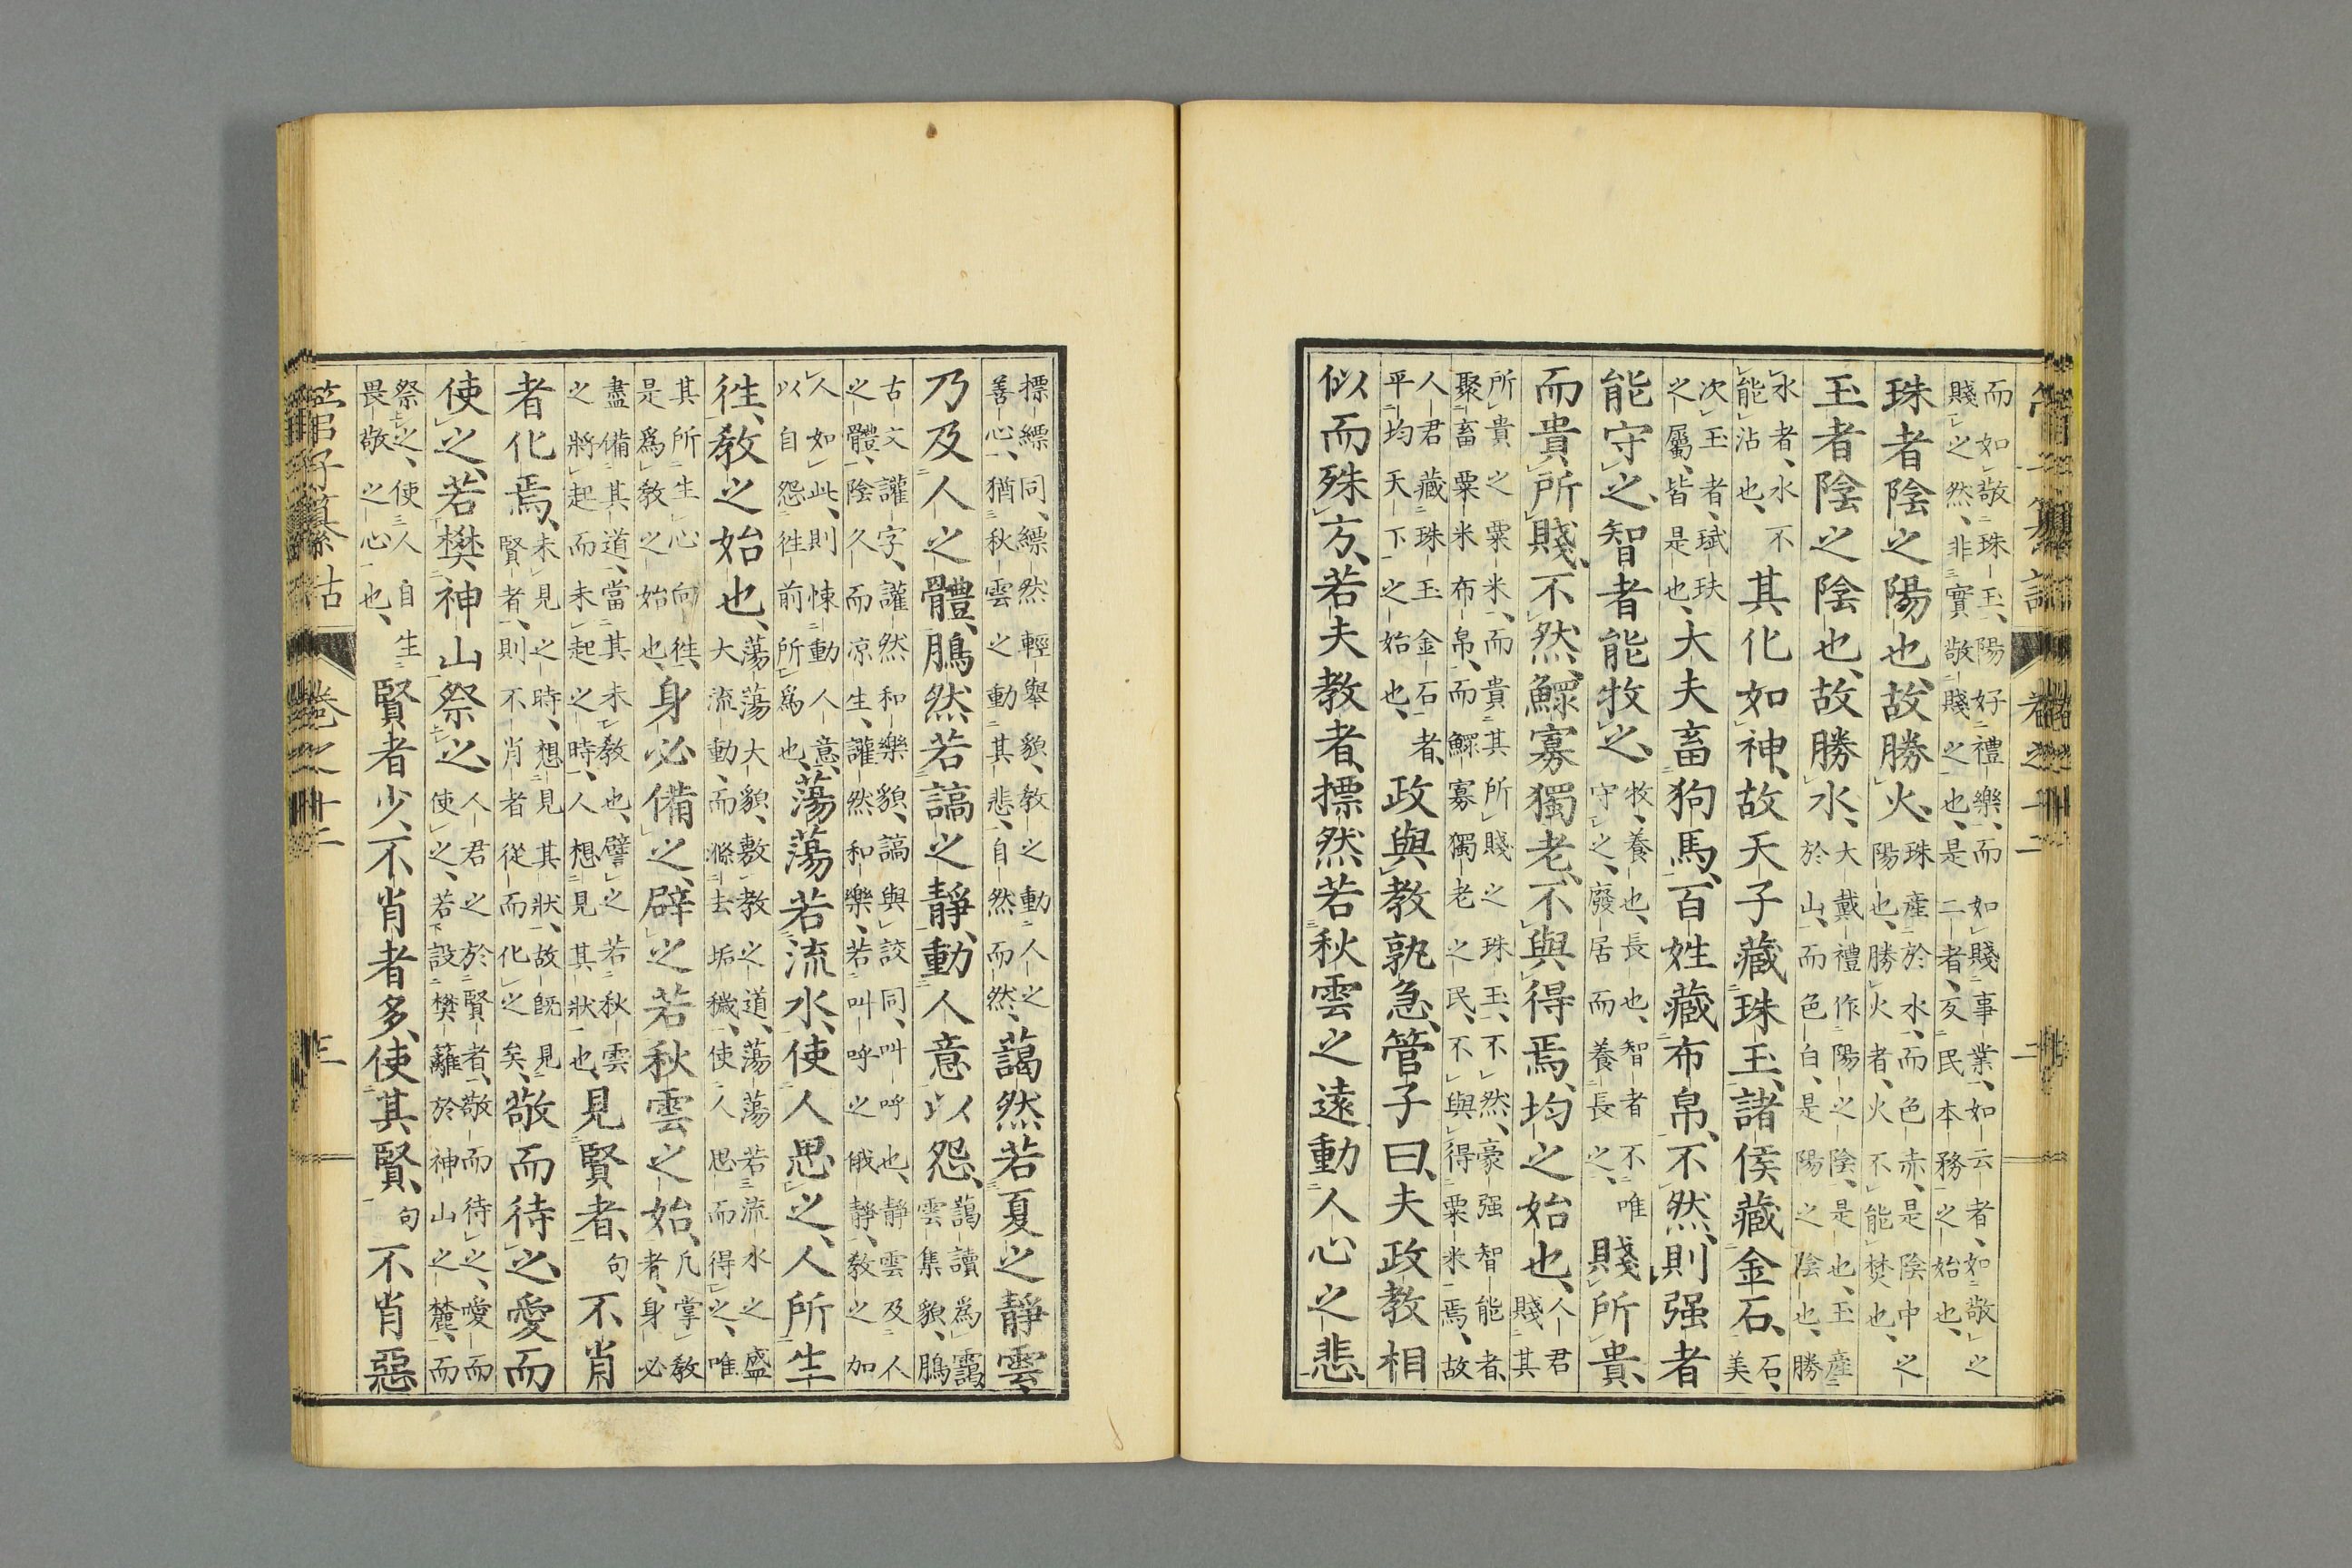 而如敬珠玉、陽好禮樂、而如賤事業、如云者、如敬之
賤之然、非實敬賤之也、是二者、亥民本務之始也、
珠者陰之陽也、故勝火、珠産於水、而色赤、是陰中之
陽也、勝火者、火不能焚也、
玉者陰之陰也、故勝水、大戴禮作陽之陰、是也、玉産
於山、而色白、是陽之陰也、勝
水者、水不
能沾也、其化如神、故天子藏珠玉、諸侯藏金石、石、
美
次玉者、珷玞
之屬、皆是也、大夫畜狗馬、百姓藏布帛、不然、則强者
能守之、智者能牧之、牧、養也、長也、智者不唯
守之、廢居而養長之、賤所貴、
而貴所賤、不然、鰥寡獨老、不與得焉、均之始也、人君
賤其
所貴之粟米、而貴其所賤之珠玉、不然、豪强智能者、
聚畜粟米布帛、而鰥寡獨老之民、不與得粟米焉、故
人君藏珠玉金石者、
平均天下之始也、政與教孰急、管子曰、夫政教相
似而殊方、若夫教者、摽然若秋雲之遠動人心之悲、
摽縹同、縹然輕舉貌、教之動人之
善心、猶秋雲之動其悲、自然而然、藹然若夏之靜雲、
乃及人之體、鵩然若謞之靜、動人意以怨、藹讀爲靄、
雲集貌、鵩
古文讙字、讙然和樂貌、謞與詨同、叫呼也、靜雲及人
之體、陰久而凉生、讙然和樂、若叫呼之俄靜、教之加
人如此、則悚動人意、
以自怨徃前所爲也、蕩蕩若流水、使人思之、人所生
徃、教之始也、蕩蕩大貌、敷教之道、蕩蕩若流水之盛
大流動、而滌去垢穢、使人思而得之、唯
其所生心向徃、
是爲教之始也、身必備之、辟之若秋雲之始、凡掌教
者、身必
盡備其道、當其未教也、譬之若秋雲
之將起而未起之時、人想見其狀也、見賢者、句不肖
者化焉、未見之時、想見其狀、故既見
賢者、則不肖者從而化之矣、敬而待之、愛而
使之、若樊神山祭之、人君之於賢者、敬而待之、愛而
使之、若設樊籬於神山之麓、而
祭之、使人自生
畏敬之心也、賢者少、不肖者多、使其賢、句不肖惡
管子纂詁　卷之十二　三